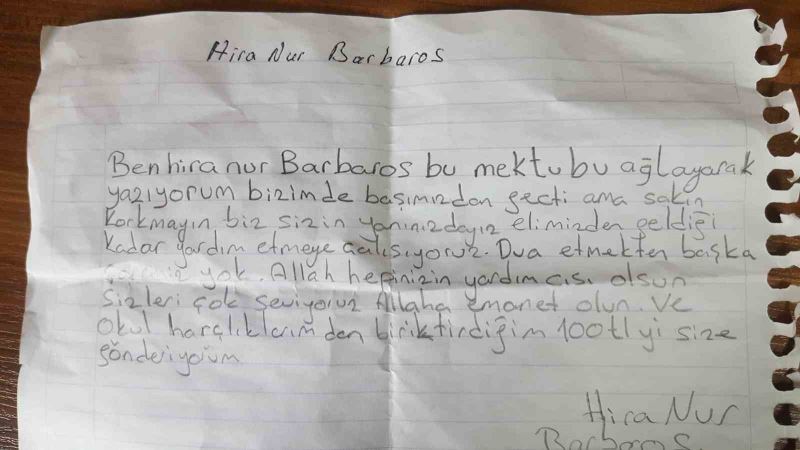 Hira Nur Barbaros
Ben hira nur Barbaros bu mektubu ağlayarak
yazıyorum bizimde başımızdan geçti ama sakın
korkmayın biz sizin yanınızdayız elimizden geldiği
kadar yardım etmeye çalışıyoruz. Dua etmekten başka
yok. Allah hepinizin yardımcısı olsun
Sizleri çok seviyoruz Allaha emanet olun. Ve
Okul harçlıklarımdan biriktirdiğim 100tl yi size
gönderiyorum
Hira Nur
Barbaros.